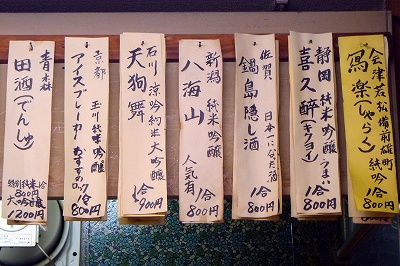 会津若松 備前雄町
寫楽(しゃらく)
純吟 1合
800円
静岡 純米吟醸 うまい
喜久酔(キクヨイ)
1合
800円
佐賀 日本一になった酒
鍋島隠し酒
1合
800円
新潟 純米吟醸
八海山
人気有
1合
800円
石川 涼 吟 純米大吟醸
天狗舞
1合
900円
京都 玉川純米吟醸
アイスブレーカー
おすすめロック
1合
800円
青森
田酒(でんしゅ)
特別純米1合
800円
大吟醸
1200円